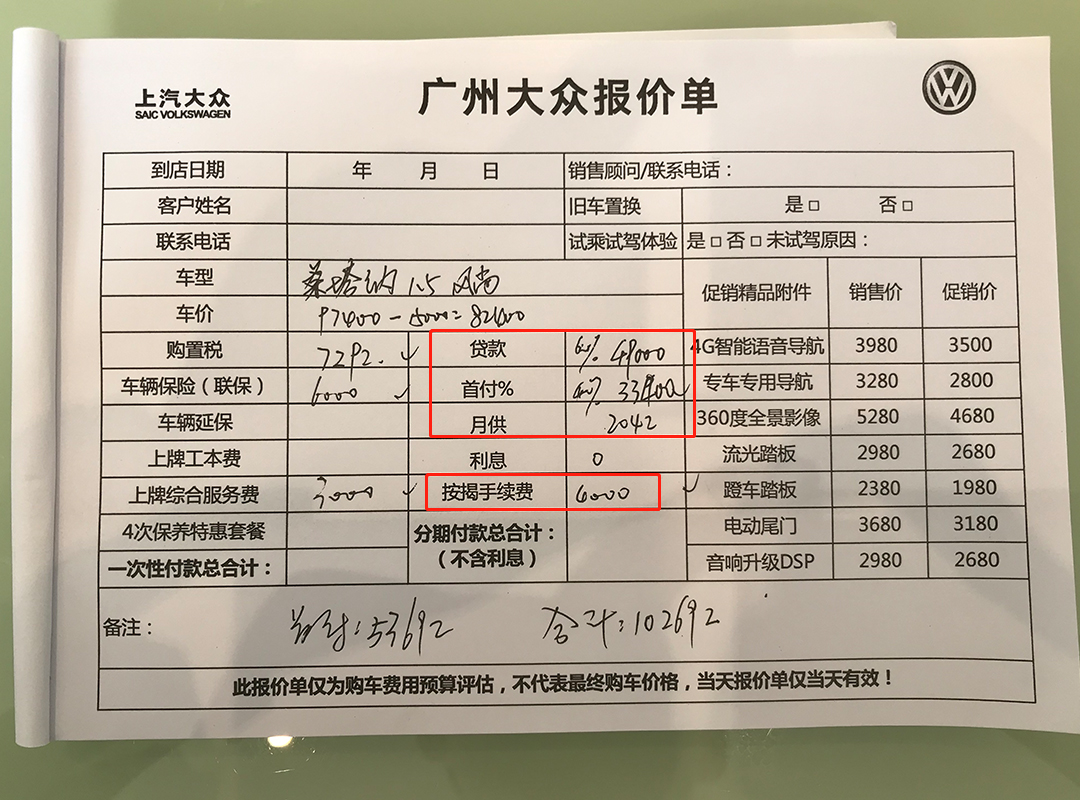 上汽大众
SAIC VOLKSWAGEN
广州大众报价单
到店日期 年 月 日 销售顾问/联系电话：
客户姓名 旧车置换 是□ 否□
联系电话 试乘试驾体验 是□否□未试驾原因：
车型 桑塔纳 1.5 风尚 促销精品附件 销售价 促销价
车价 97400-15000=82400
购置税 7292. ✓ 贷款 60% 49000 4G智能语音导航 3980 3500
车辆保险（联保） 6000 ✓ 首付% 40% 33400 ✓ 专车专用导航 3280 2800
车辆延保 月供 2042 360度全景影像 5280 4680
上牌工本费 利息 0 流光踏板 2980 2680
上牌综合服务费 3000 ✓ 按揭手续费 4000 ✓ 蹬车踏板 2380 1980
4次保养特惠套餐 分期付款总合计：（不含利息） 电动尾门 3680 3180
一次性付款总合计： 音响升级DSP 2980 2680
备注： 首付：53692 合计：102692
此报价单仅为购车费用预算评估，不代表最终购车价格，当天报价单仅当天有效！